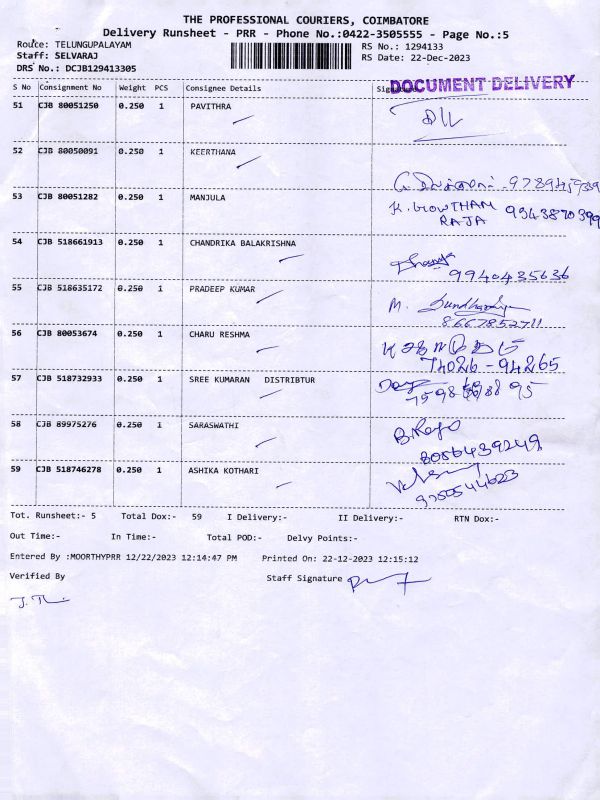 THE PROFESSIONAL COURIERS, COIMBATORE
Delivery Runsheet - PRR - Phone No.:0422-3505555 - Page No.:5
Route: TELUNGUPALAYAM
RS No.: 1294133
Staff: SELVARAJ
RS Date: 22-Dec-2023
DRS No.: DCJB129413305
DOCUMENT DELIVERY
S No Consignment No Weight PCS Consignee Details
51 CJB 80051250 0.250 1 PAVITHRA
52 CJB 80050091 0.250 1 KEERTHANA
53 CJB 80051282 0.250 1 MANJULA K. GOWTHAM
RAJA 9943870399
54 CJB 518661913 0.250 1 CHANDRIKA BALAKRISHNA
9940435636
55 CJB 518635172 0.250 1 PRADEEP KUMAR M.
8667852711
56 CJB 80053674 0.250 1 CHARU RESHMA
74026-94265
57 CJB 518732933 0.250 1 SREE KUMARAN DISTRIBTUR
58 CJB 89975276 0.250 1 SARASWATHI
8056439249
59 CJB 518746278 0.250 1 ASHIKA KOTHARI
9750544623
Tot. Runsheet:- 5 Total Dox:- 59 I Delivery:- II Delivery:- RTN Dox:-
Out Time:- In Time:- Total POD:- Delvy Points:-
Entered By :MOORTHYPRR 12/22/2023 12:14:47 PM Printed On: 22-12-2023 12:15:12
Verified By Staff Signature